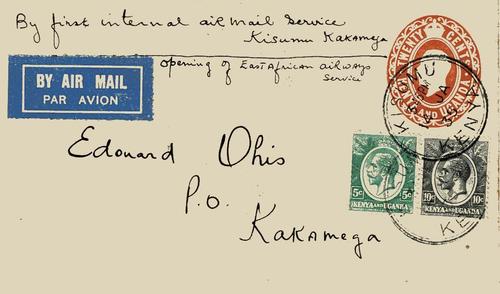 By first internal air mail service
Kisumu Kakamega
opening of East African airways
service
BY AIR MAIL
PAR AVION
TWENTY CEN
AND UGANDA
KISUMU
JA
KENYA
Edouard
P.O.
Kakamega
5c 5c
KENYA AND UGANDA
10c 10c
KENYA AND UGANDA